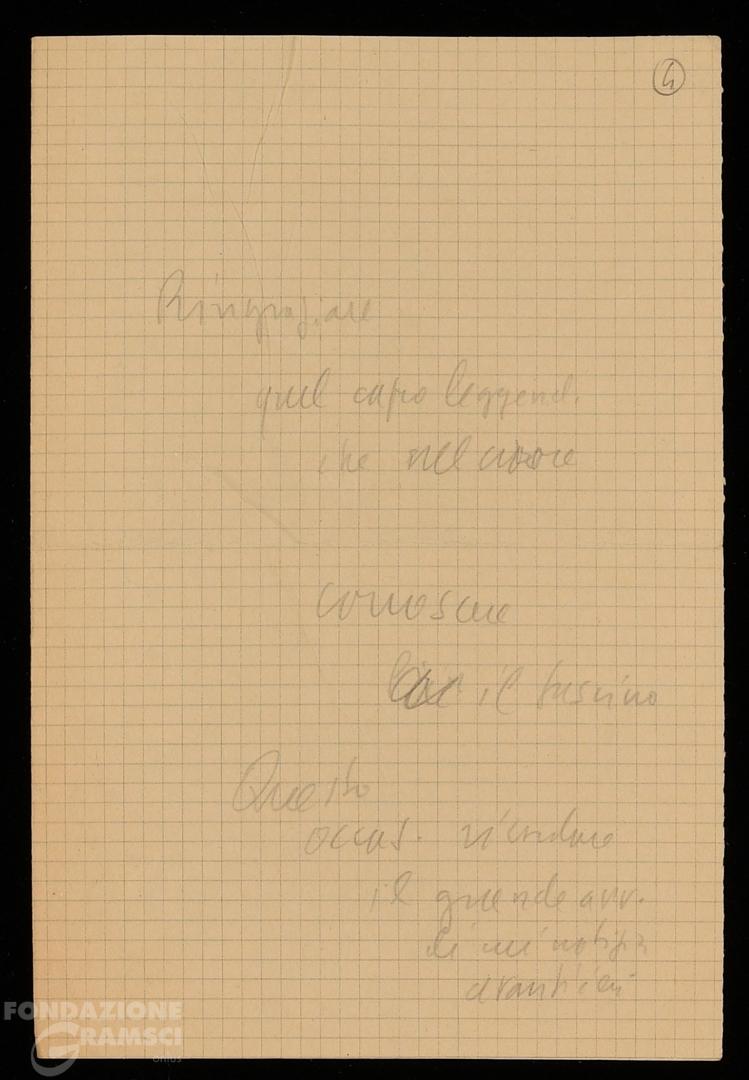 4
Ringraziare
quel capo leggend.
che nel cuore
conoscere
il fascino
Questo
occas. ricordare
il grande avv.
di cui notizia
avantieri
FONDAZIONE
GRAMSCI
onlus